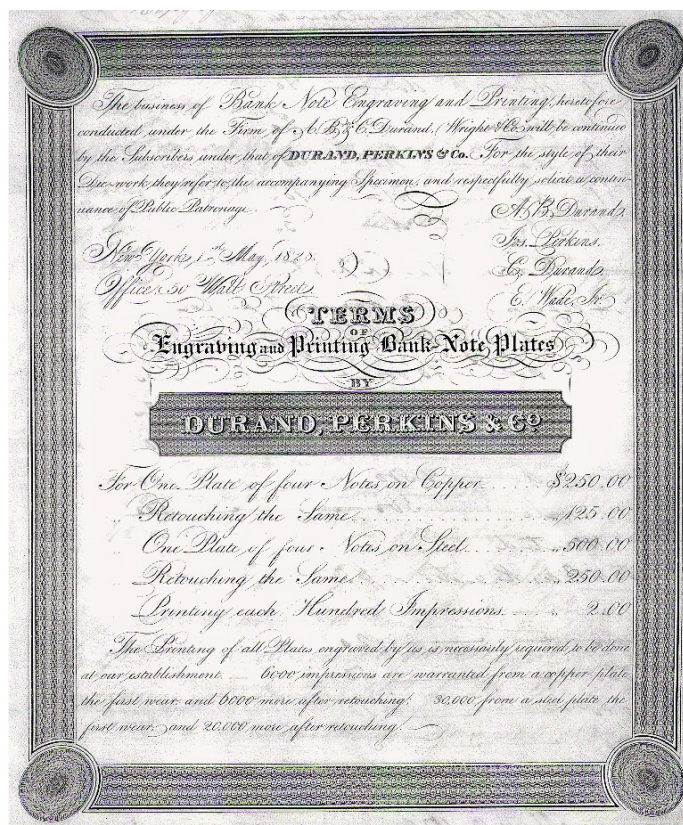 The business of Bank Note Engraving and Printing, heretofore
conducted under the Firm of A. B. & C. Durand, Wright & Co. will be continued
by the Subscribers under that of DURAND, PERKINS & Co. For the style of their
Die-work they refer to the accompanying Specimen, and respectfully solicit a contin-
uance of Public Patronage.
A. B. Durand.
Jas. Perkins.
New-York, 1st May, 1828.
C. Durand.
Office, 50 Wall Street.
E. Wade, Jr.
TERMS
OF
Engraving and Printing Bank Note Plates
BY
DURAND, PERKINS & Co
For One Plate of four Notes on Copper $250.00
" Retouching the Same " 125.00
" One Plate of four Notes on Steel " 500.00
" Retouching the Same " 250.00
" Printing each Hundred Impressions " 2.00
The Printing of all Plates engraved by us, is necessarily required to be done
at our establishment. 6000 impressions are warranted from a copper plate
the first wear, and 6000 more after retouching; 30,000 from a steel plate the
first wear, and 20,000 more after retouching.